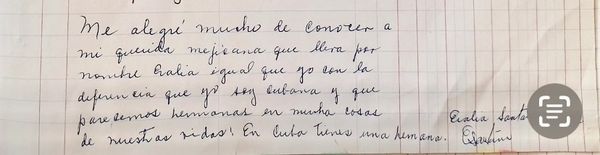 Me alegré mucho de conocer a
mi querida mejicana que lleva por
nombre Eralia igual que yo con la
diferencia que yo soy cubana y que
parecemos hermanas en mucha cosas
de nuestras vidas! En Cuba tienes una hermana.
Eralia Santa